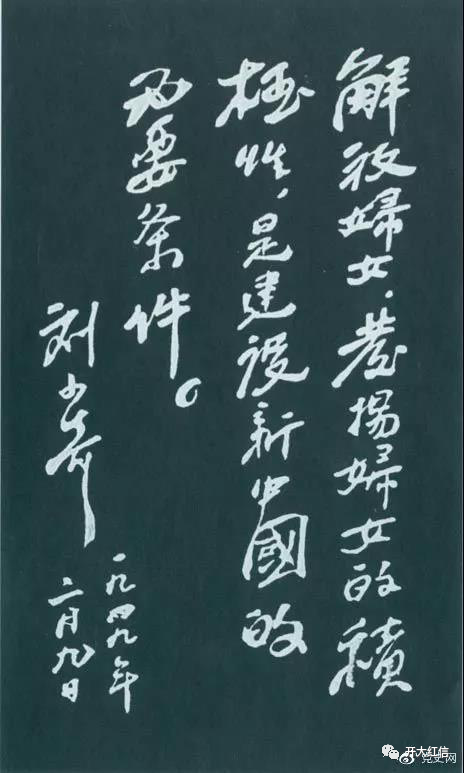 解放婦女、發揚婦女的積
極性，是建設新中國的
必要条件。
刘少奇
一九四九年
二月九日
开大红信
党史网